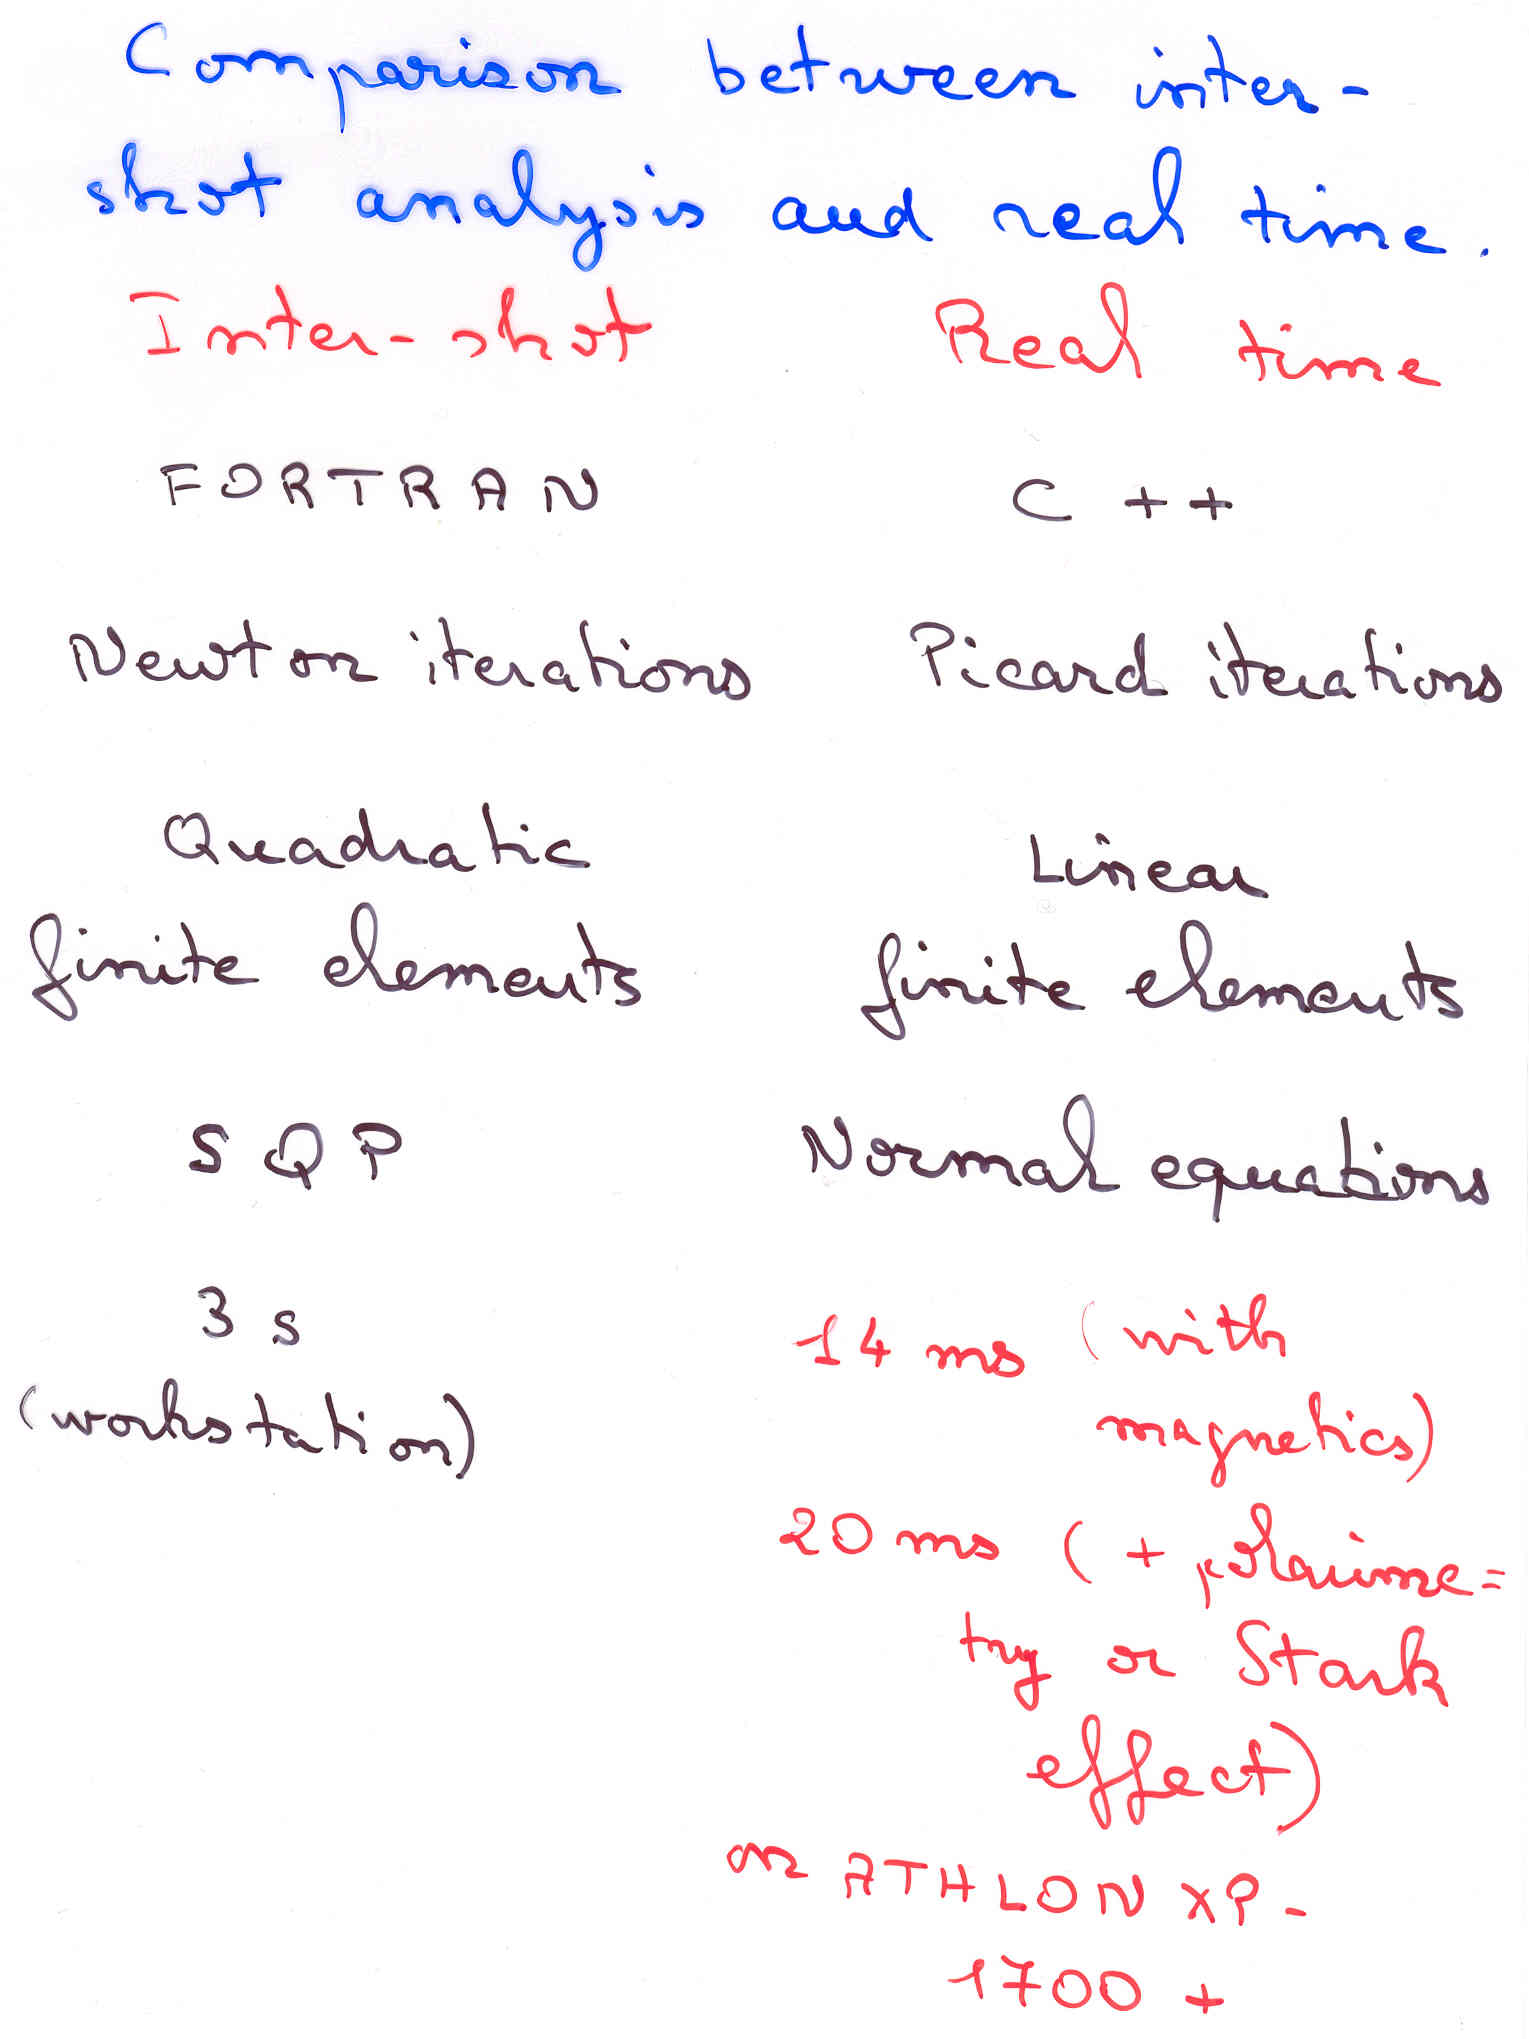 Comparison between inter-
shot analysis and real time.
Inter-shot Real time
FORTRAN C++
Newton iterations Picard iterations
Quadratic Linear
finite elements finite elements
SQP Normal equations
3 s 14 ms (with
(workstation) magnetics)
20 ms (+ polarime=
try or Stark
effect)
on ATHLON XP-
1700 +